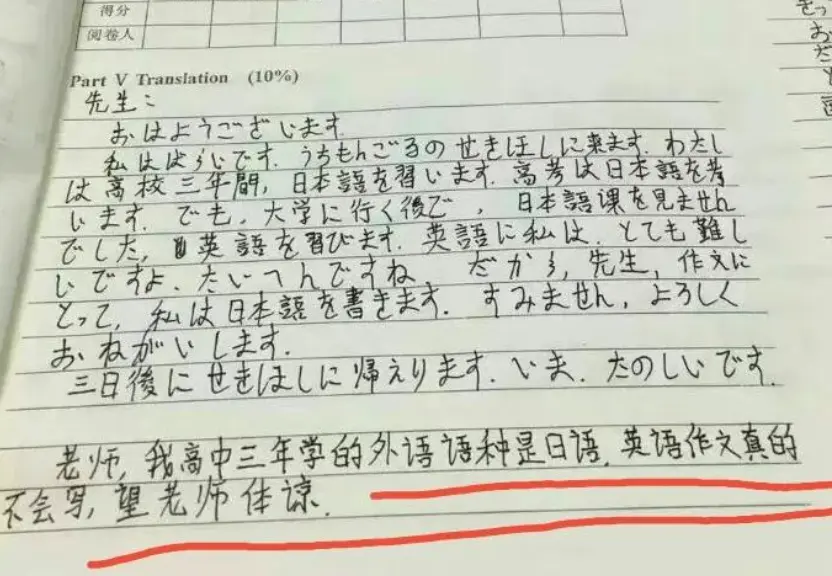 得分
阅卷人
Part V Translation (10%)
先生:
おはようございます
私ははらいです. うちもんごるの せきほしに来ます. わたし
は高校三年間, 日本語を習います. 高考は日本語を考
います. でも, 大学に行く後で, 日本語课を見ません
でした, 英語を習びます. 英語に私は. とても難し
いですよ. たいへんですね だから, 先生, 作文に
とって, 私は日本語を書きます. すみません, よろしく
おねがいします.
三日後にせきほしに帰えります. いま. たのしいです.
老师, 我高中三年学的外语语种是日语. 英语作文真的
不会写, 望老师体谅.